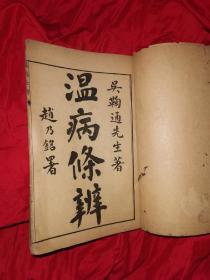 吳鞠通先生著
温病條辨
趙乃銘署